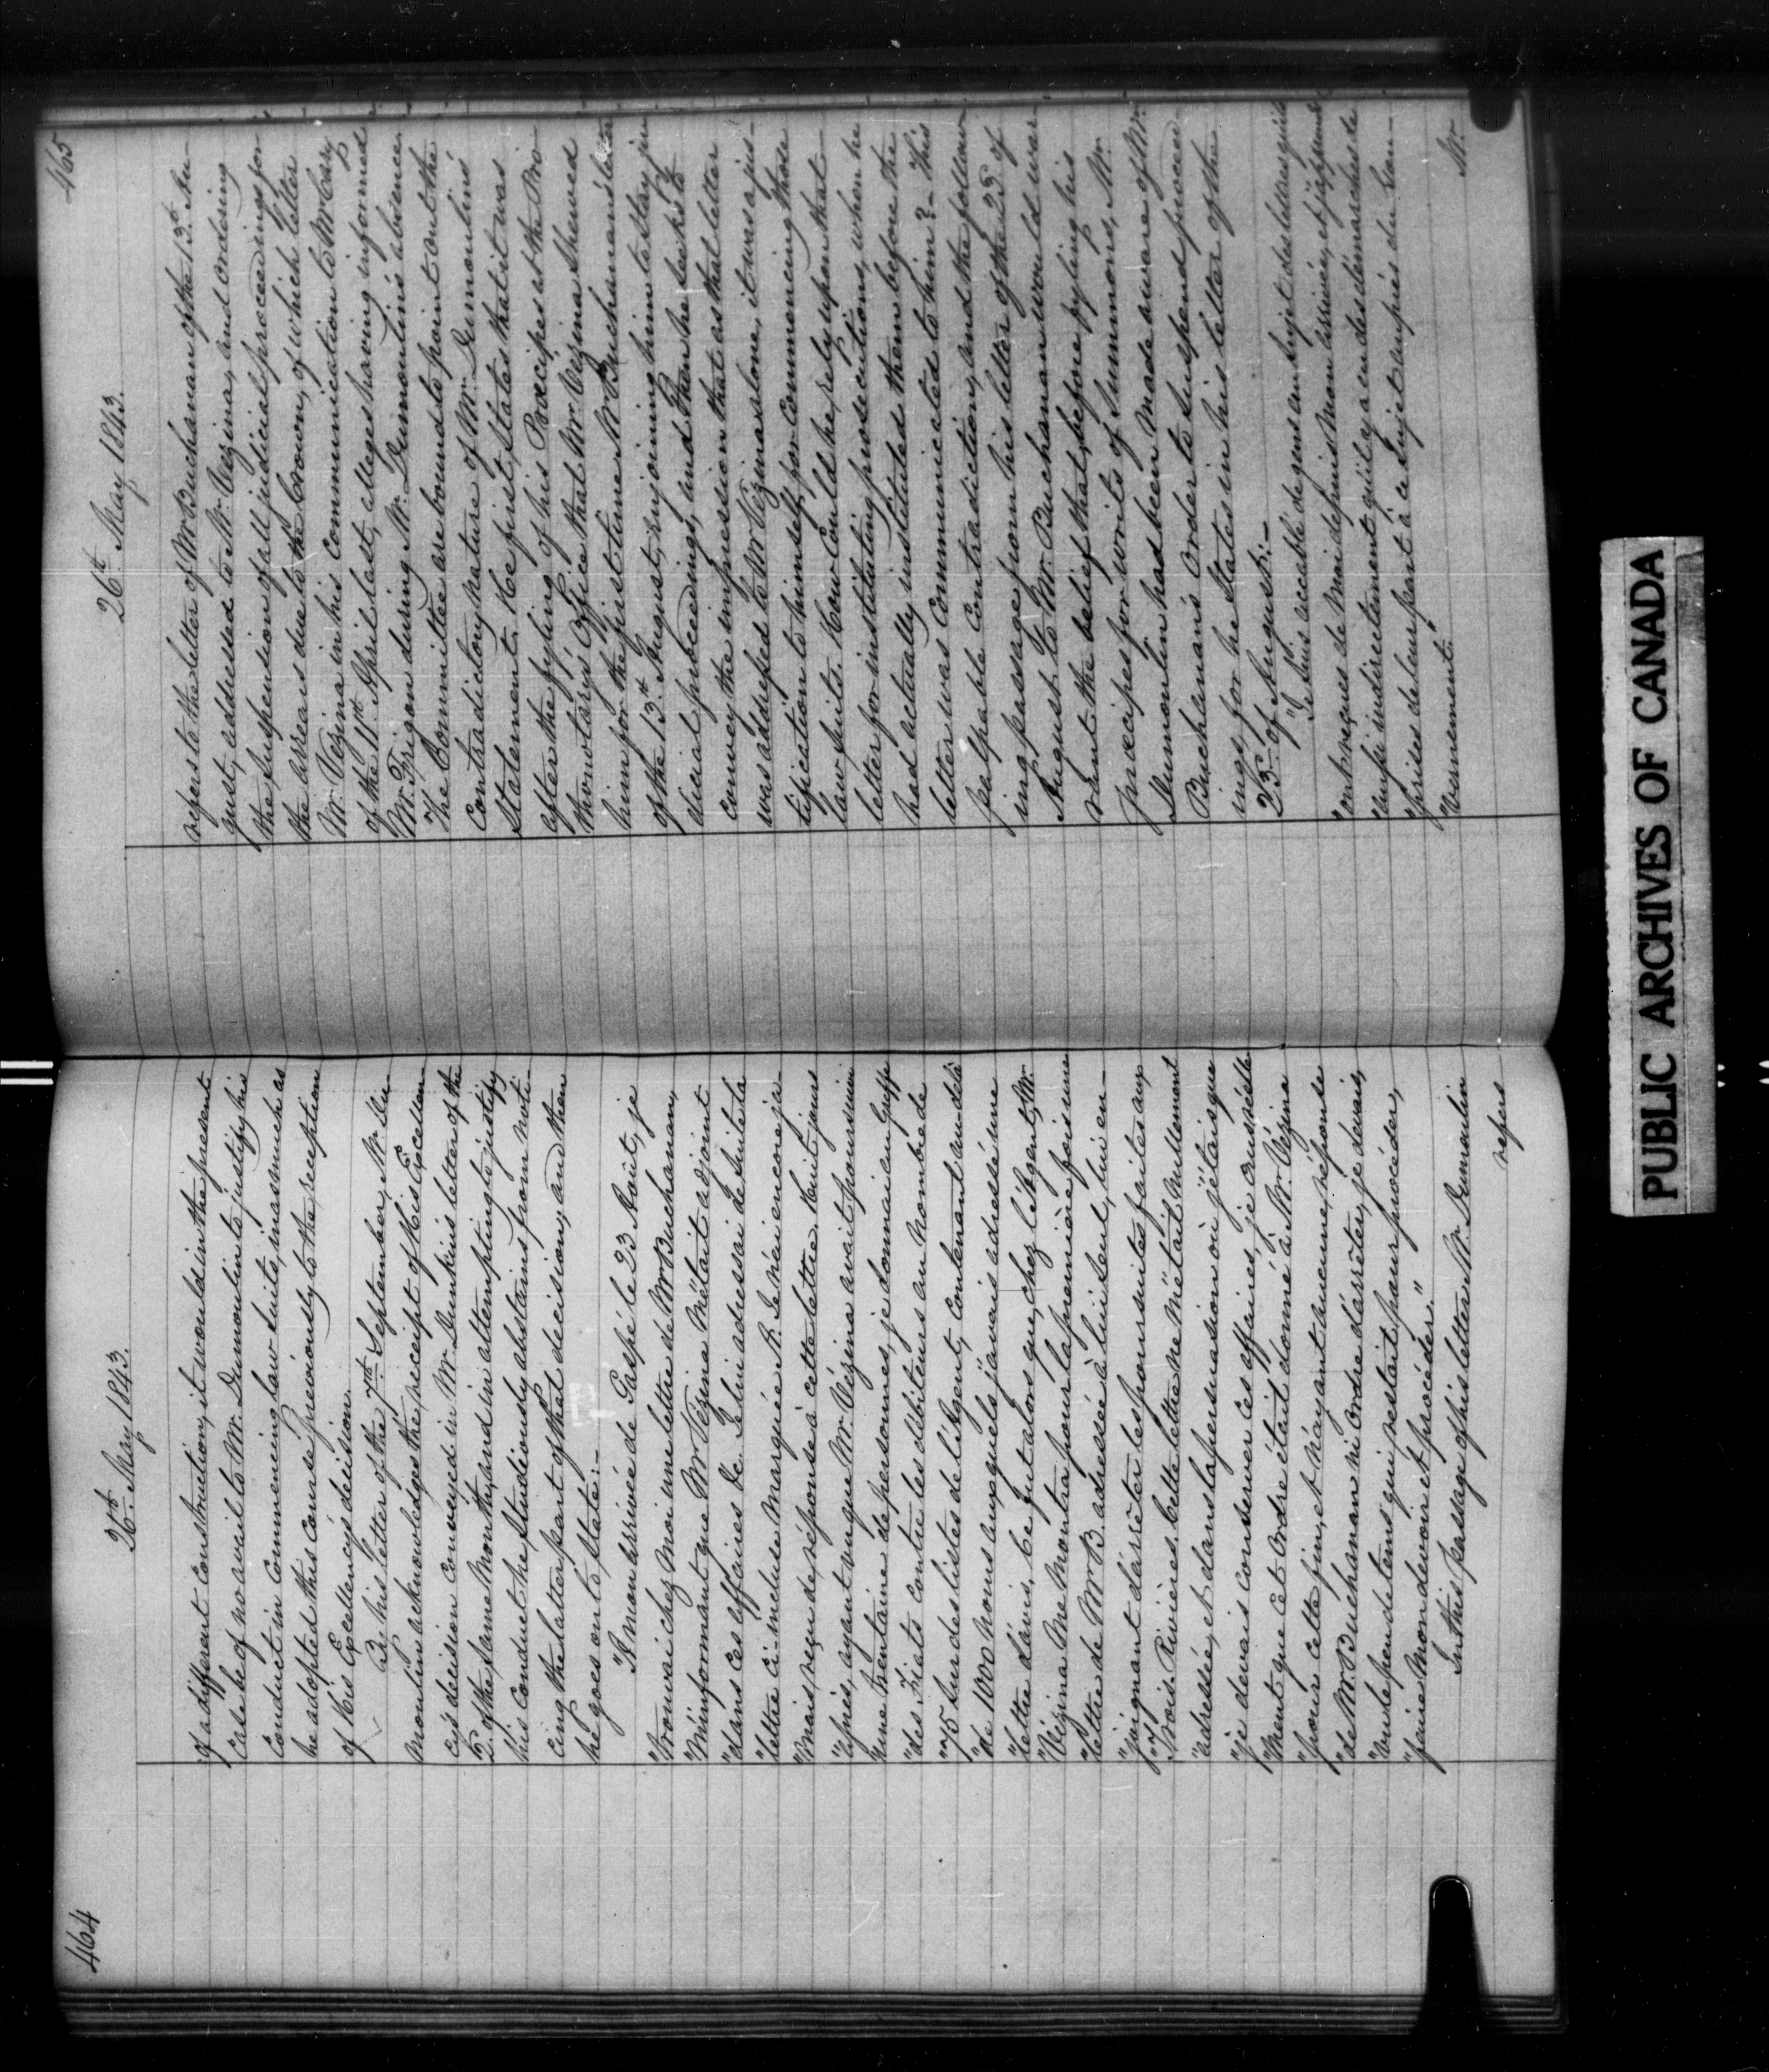 464
26th May 1843.
of a different construction, it would in the present
case be of no avail to Mr. Dumoulin to justify his
conduct in commencing law suits, inasmuch as
he adopted this course previously to the reception
of His Excellency's decision.
By his letter of the 7th September, Mr. Du-
moulin acknowledges the receipt of His Excellen-
cy's decision conveyed in Mr. Dunkin's letter of the
5. of the same Month, and in attempting to justify
his conduct he studiously abstains from noti-
cing the latter part of that decision, and then
he goes on to state:—
"A mon arrivée de Gaspé le 23 Août, je
"trouvai chez moi une lettre de Mr Buchanan,
"m'informant que Mr Vézina m'était adjoint
"dans ces affaires &c. Je lui adressai de suite la
"lettre ci-incluse marquée A. Je n'ai encore ja-
"mais reçu de réponse à cette lettre. Huit jours
"après, ayant vu que Mr. Vézina avait poursuivi
"une trentaine de personnes, je donnai au Greffe
"des Fiats contre les débiteurs au nombre de
"75 sur des listes de l'Agent, contenant au delà
"de 1000 noms auxquels j'avais adressé une
"lettre d'avis. Ce fut alors que, chez l'Agent, Mr.
"Vézina me montra pour la première fois une
"lettre de Mr B. adressée à lui seul, lui en-
"joignant d'arrêter les poursuites faites aux
"Trois-Rivières. Cette lettre ne m'était nullement
"adressée, et dans la persuasion où j'étais que
"je devais conserver ces affaires, je crus réelle-
"ment que cet ordre était donné à Mr. Vézina
"pour cette fin, et n'ayant aucune réponse
"de Mr. Buchanan ni ordre d'arrêter, je devais,
"vu le peu de tems qui restait pour procéder,
"faire mon devoir et procéder."
In this passage of his letter Mr. Dumoulin
refers
465
26th May 1843.
refers to the letter of Mr Buchanan of the 13th Au-
gust, addressed to Mr. Vézina, and ordering
the suspension of all judicial proceedings for
the arrears due to the Crown, of which letter
Mr. Vézina in his communication to Mr Cary
of the 11th April last, alleges having informed
Mr. Trigon during Mr. Dumoulin's absence.
The Committee are bound to point out the
contradictory nature of Mr. Dumoulin's
Statement. He first states that it was
after the fyling of his Præcipes at the Pro-
thonotary's Office that Mr. Vézina shewed
him for the first time Mr Buchanan's letter
of the 13th August, enjoining him to stay ju-
dicial proceedings, and then he seeks to
convey the impression that as that letter
was addressed to Mr Vézina alone, it was a jus-
tification to himself for commencing those
law suits. How could he rely upon that
letter for instituting prosecutions, when he
had actually instituted them before the
letter was communicated to him?— This
palpable contradiction, and the follow-
ing passage from his letter of the 25 of
August to Mr. Buchanan would war-
rant the belief that, before fyling his
præcipes for writs of Summons, Mr.
Dumoulin had been made aware of Mr.
Buchanan's order to suspend proceed-
ings, for he states in his letter of the
25th of August:—
"Je suis accablé de gens au sujet des lettres qu'ils
"ont reçues de moi depuis mon arrivée, et j'apprends
"aussi indirectement qu'il y a eu des démarches de
"prises de leur part à ce sujet auprès du Gou-
"vernement.
Mr.
PUBLIC ARCHIVES OF CANADA